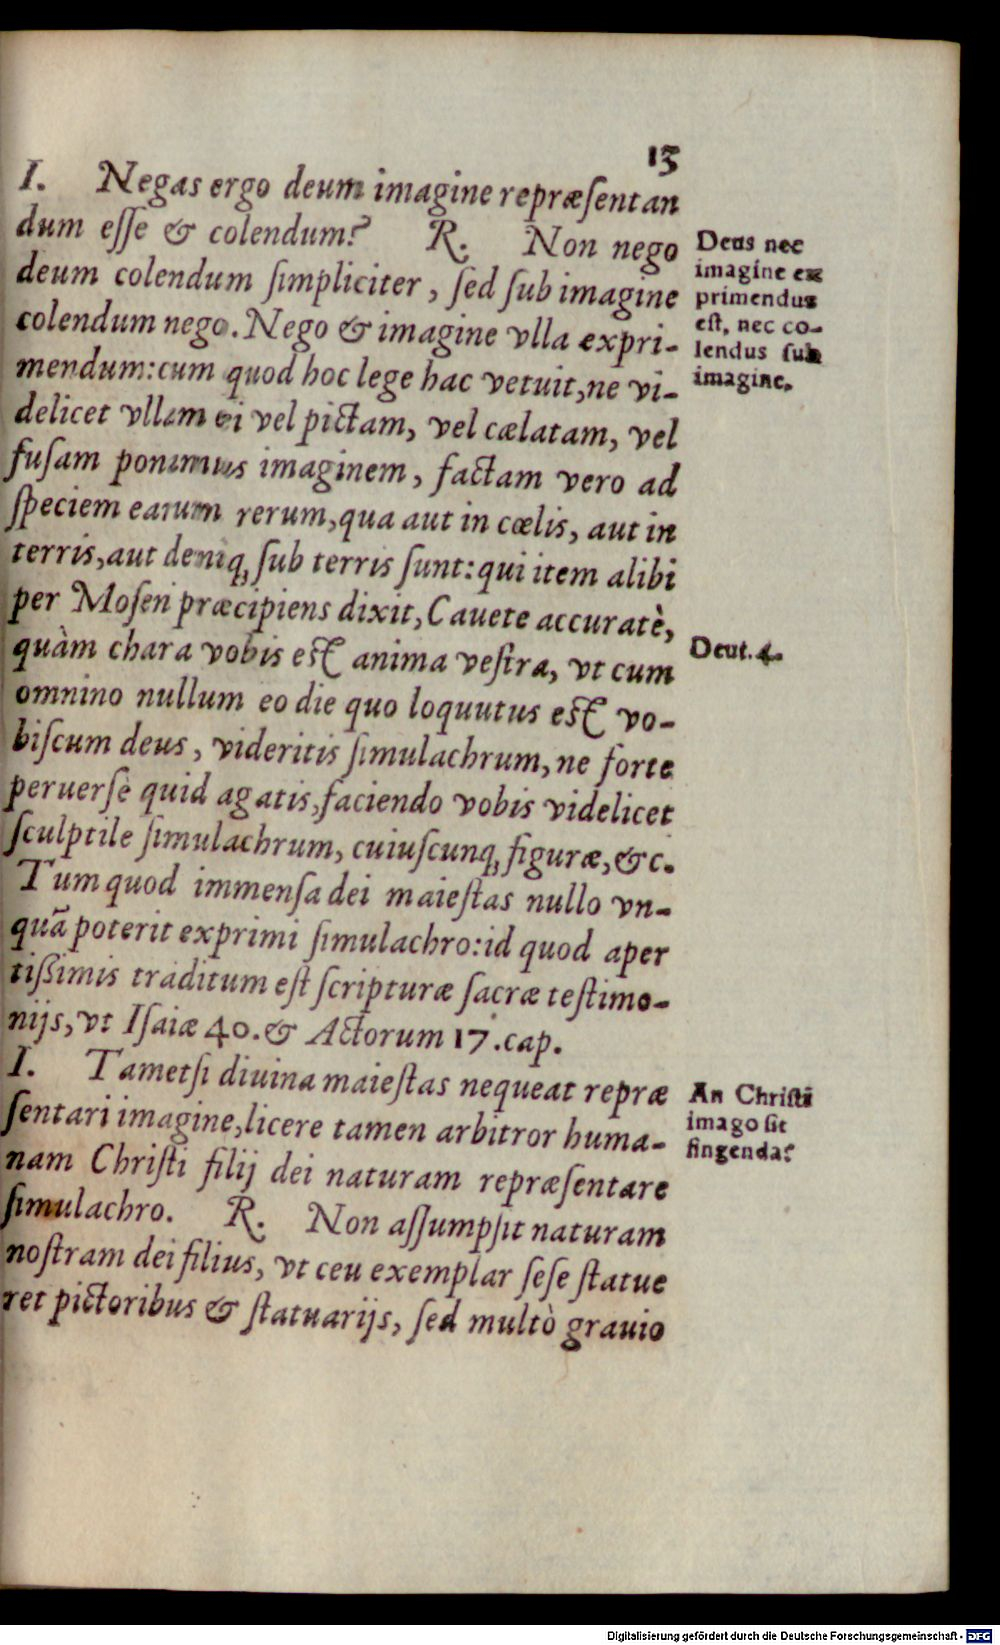 13
I. Negas ergo deum imagine repræſentan
dum eſſe & colendum? R. Non nego
deum colendum ſimpliciter, ſed ſub imagine
colendum nego. Nego & imagine vlla expri-
mendum: cum quod hoc lege hac vetuit, ne vi-
delicet vllam ei vel pictam, vel cælatam, vel
fuſam ponamus imaginem, factam vero ad
ſpeciem earum rerum, qua aut in cœlis, aut in
terris, aut deniq; ſub terris ſunt: qui item alibi
per Moſen præcipiens dixit, Cauete accuratè,
quàm chara vobis eſt anima veſtra, vt cum
omnino nullum eo die quo loquutus eſt vo-
biſcum deus, videritis ſimulachrum, ne forte
peruerſè quid agatis, faciendo vobis videlicet
ſculptile ſimulachrum, cuiuſcunq; figuræ, &c.
Tum quod immenſa dei maieſtas nullo vn-
quā poterit exprimi ſimulachro: id quod aper
tißimis traditum eſt ſcripturæ ſacræ teſtimo-
nijs, vt Iſaiæ 40. & Actorum 17. cap.
I. Tametſi diuina maieſtas nequeat repræ
ſentari imagine, licere tamen arbitror huma-
nam Chriſti filij dei naturam repræſentare
ſimulachro. R. Non aſſumpſit naturam
noſtram dei filius, vt ceu exemplar ſeſe ſtatue
ret pictoribus & ſtatuarijs, ſed multò grauio
Deus nec
imagine ex
primendus
eſt, nec co-
lendus ſub
imagine.
Deut. 4.
An Chriſti
imago ſit
fingenda?
Digitalisierung gefördert durch die Deutsche Forschungsgemeinschaft - DFG